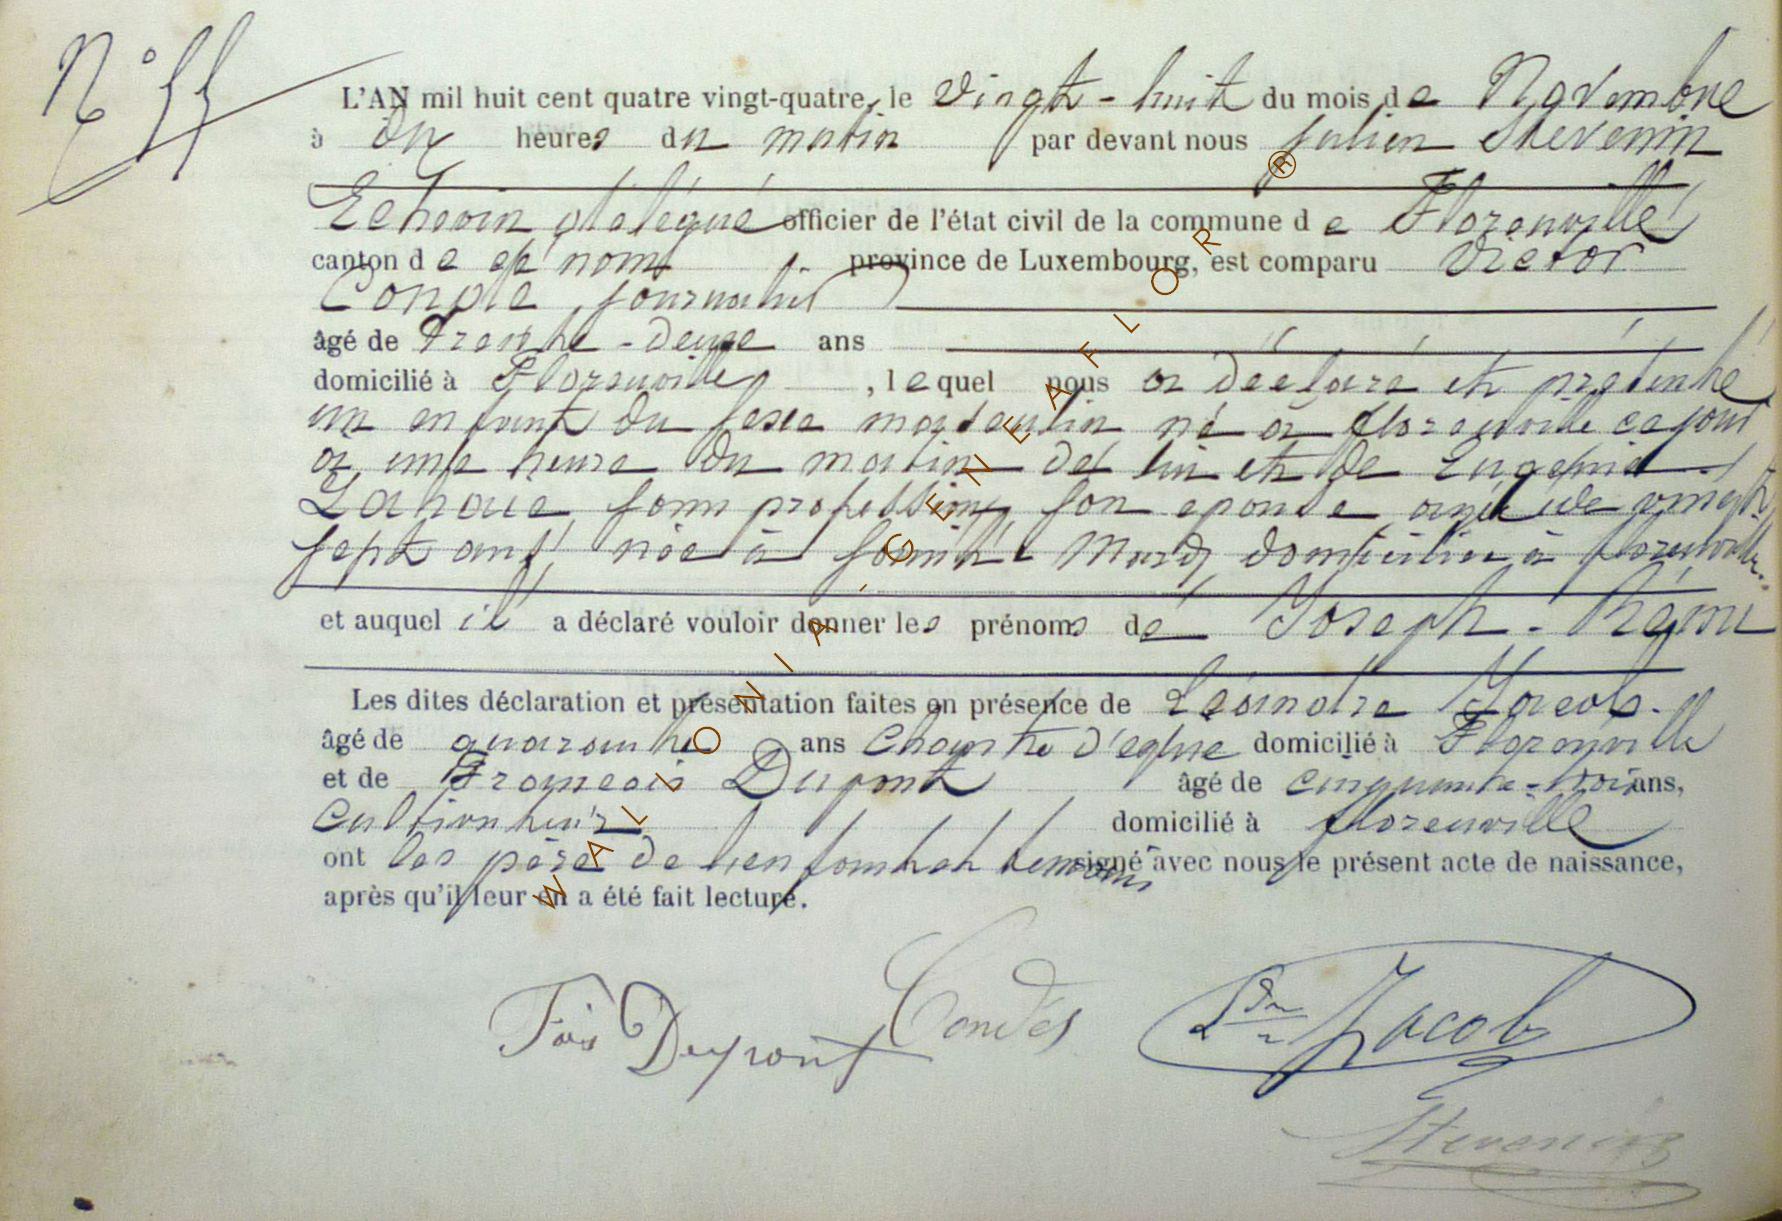 N° 55
L'AN mil huit cent quatre vingt-quatre, le vingt-huit du mois de Novembre
à dix heures du matin par devant nous Julien Stevenin
Echevin délégué officier de l'état civil de la commune de Florenville
canton de ce nom province de Luxembourg, est comparu Victor
journalier
âgé de Trente-deux ans
domicilié à Florenville, lequel nous a déclaré et présenté
un enfant du sexe masculin né à florenville ce jour
à une heure du matin de lui et de Eugénie
Lahaue sans profession son epouse agée de vingt
sept ans née à domiciliée à florenville.
et auquel il a déclaré vouloir donner les prénoms de Joseph-Rémi
Les dites déclaration et présentation faites en présence de Léandre Jacob.
âgé de quarante ans Chantre d'eglise domicilié à Florenville
et de Francois Dupont âgé de cinquante-trois ans,
Cultivateur domicilié à florenville
ont les père de l'enfant et temoins signé avec nous le présent acte de naissance,
après qu'il leur en a été fait lecture.
Fois Dupont Condés Ldre Jacob
Stevenin
WALLONIA-GENEAFLOR ®